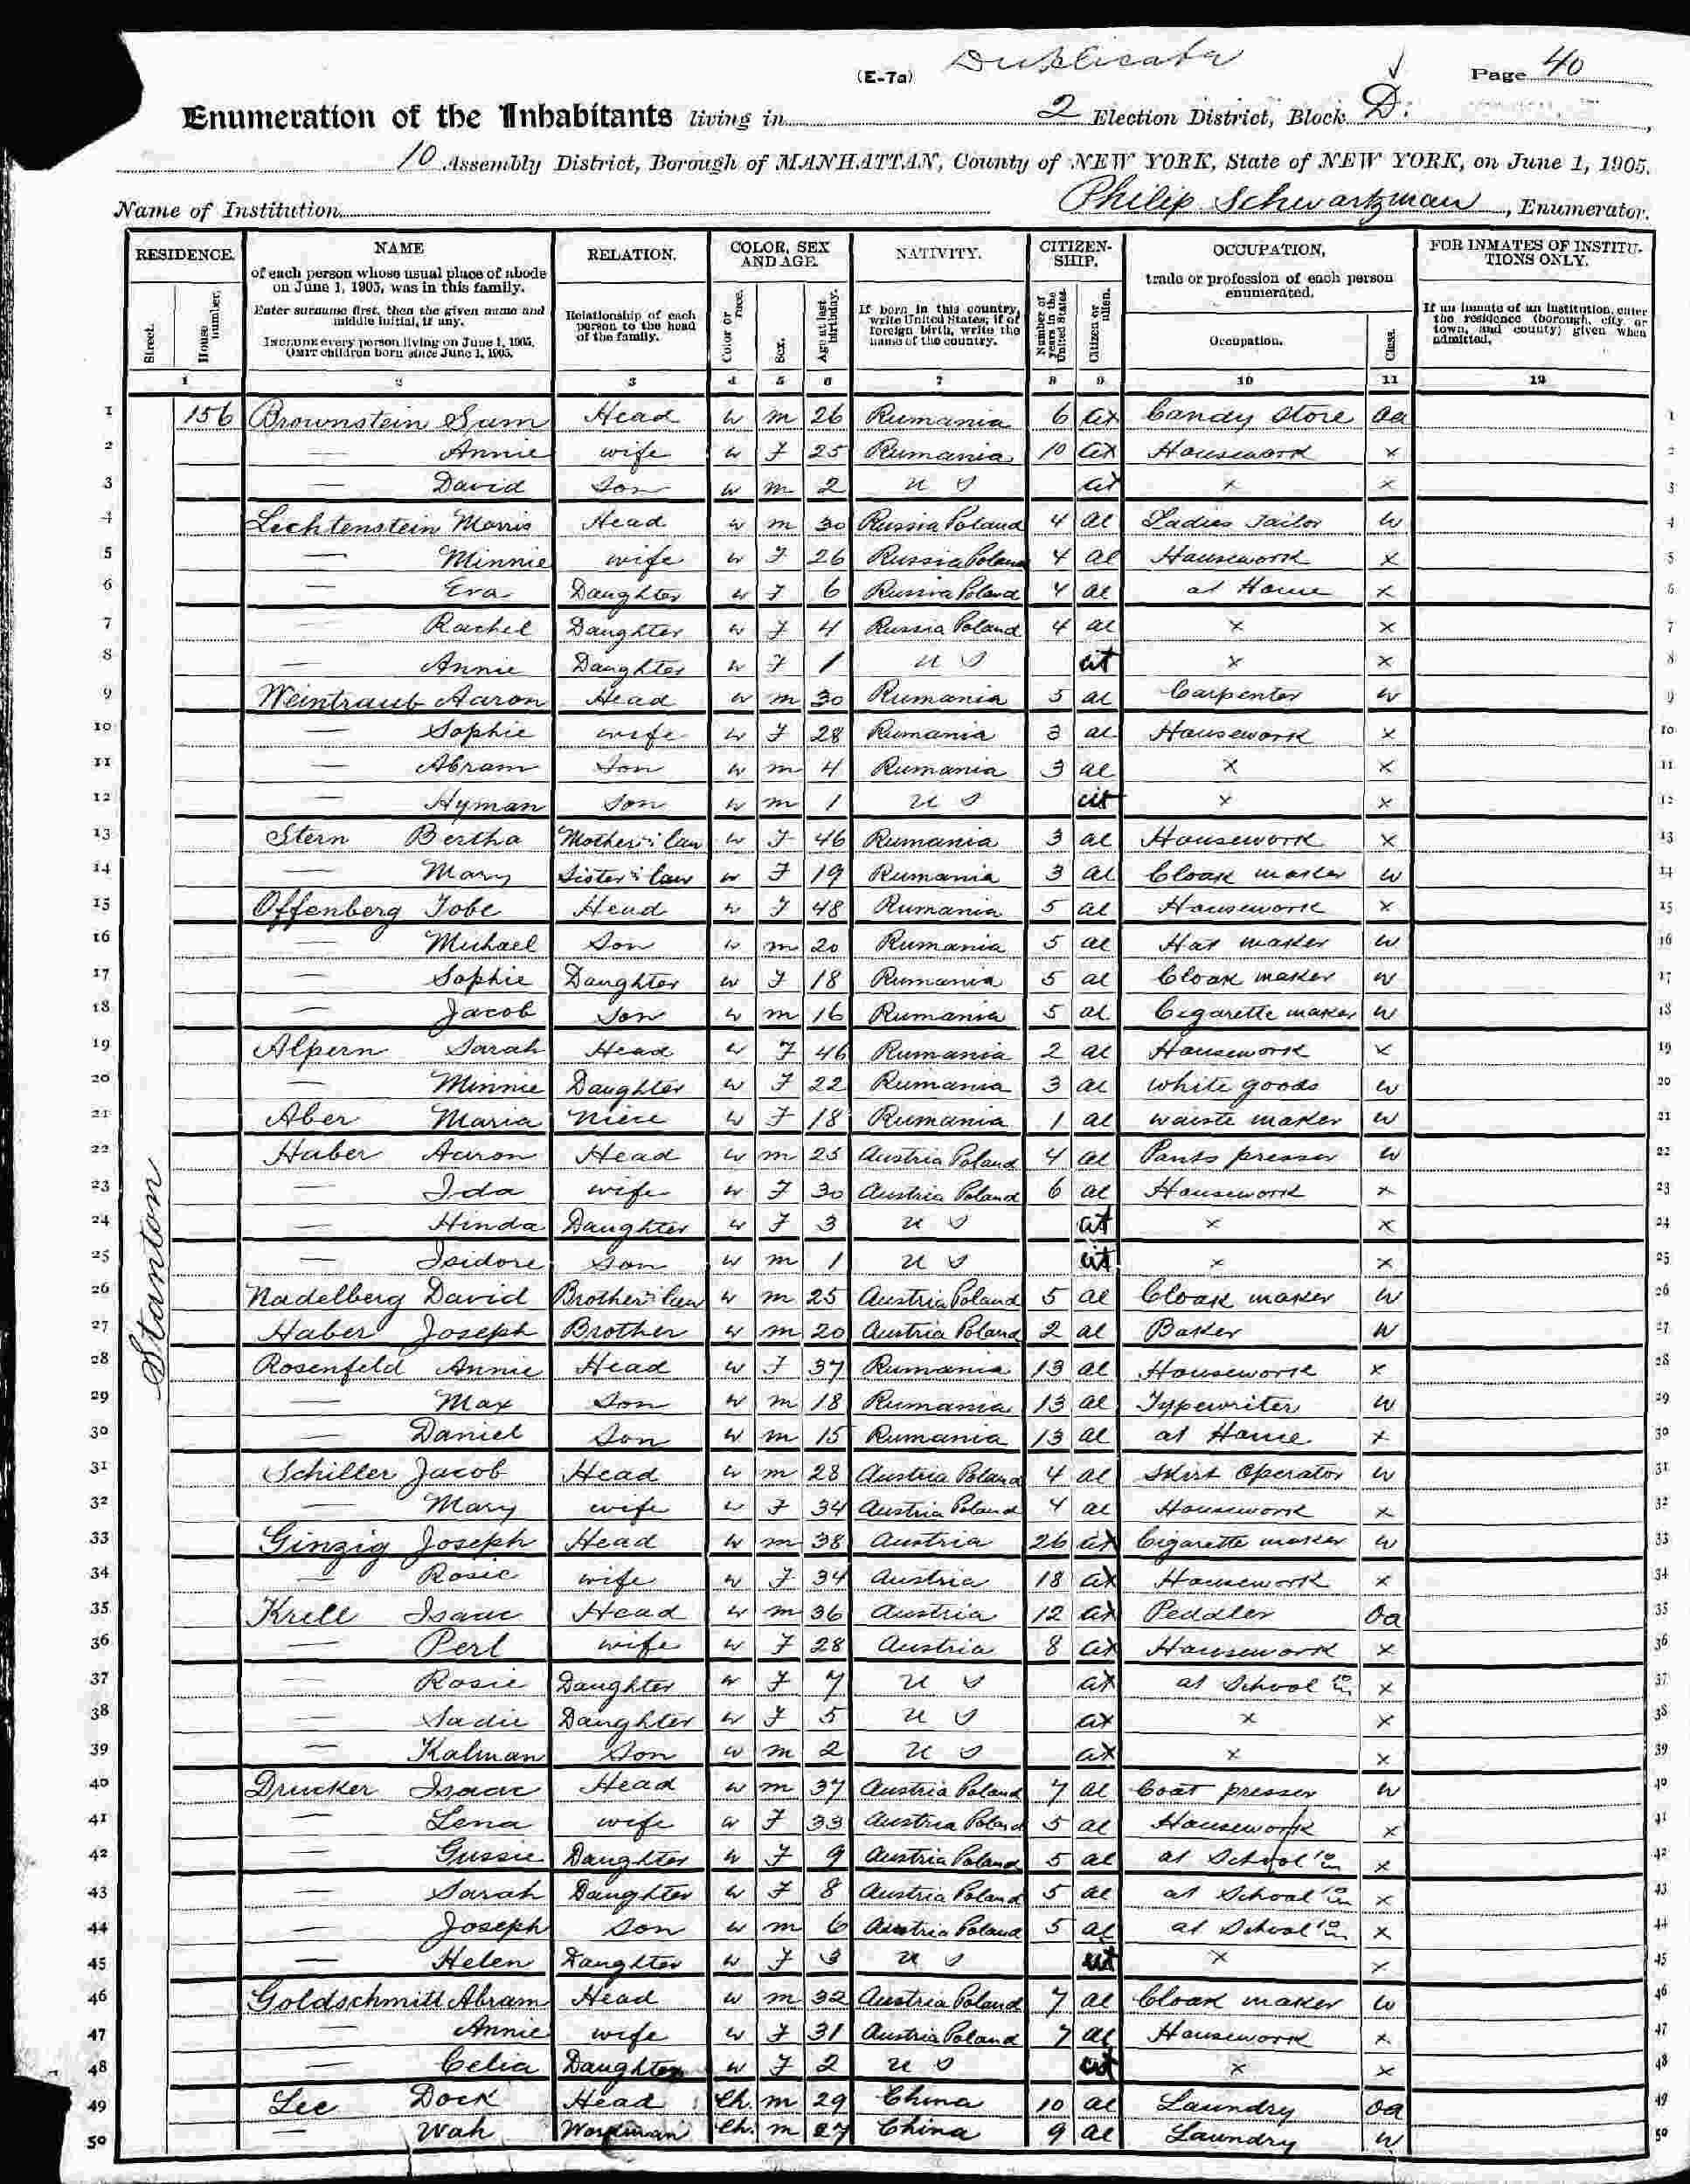 Duplicate
(E-7a)
Page 40
Enumeration of the Inhabitants living in 2 Election District, Block D.
10 Assembly District, Borough of MANHATTAN, County of NEW YORK, State of NEW YORK, on June 1, 1905.
Name of Institution Philip Schwartzman, Enumerator.
RESIDENCE. NAME RELATION. COLOR, SEX AND AGE. NATIVITY. CITIZENSHIP. OCCUPATION, FOR INMATES OF INSTITUTIONS ONLY.
of each person whose usual place of abode on June 1, 1905, was in this family.
trade or profession of each person enumerated.
Street. House number. Enter surname first, then the given name and middle initial, if any.
INCLUDE every person living on June 1, 1905. OMIT children born since June 1, 1905.
Relationship of each person to the head of the family.
Color or race. Sex. Age at last birthday.
If born in this country, write United States; if of foreign birth, write the name of the country.
Number of years in the United States. Citizen or alien. Occupation. Class.
If an inmate of an institution, enter the residence (borough, city or town, and county) given when admitted.
1 2 3 4 5 6 7 8 9 10 11 12
Stanton
1 156 Brownstein Sam Head w m 26 Rumania 6 cit Candy Store Oa 1
2 — Annie wife w F 25 Rumania 10 cit Housework x 2
3 — David Son w m 2 U S cit x x 3
4 Lechtenstein Morris Head w m 30 Russia Poland 4 al Ladies Tailor w 4
5 — Minnie wife w F 26 Russia Poland 4 al Housework x 5
6 — Eva Daughter w F 6 Russia Poland 4 al at Home x 6
7 — Rachel Daughter w F 4 Russia Poland 4 al x x 7
8 — Annie Daughter w F 1 U S cit x x 8
9 Weintraub Aaron Head w m 30 Rumania 5 al Carpenter w 9
10 — Sophie wife w F 28 Rumania 3 al Housework x 10
11 — Abram Son w m 4 Rumania 3 al x x 11
12 — Hyman Son w m 1 U S cit x x 12
13 Stern Bertha Mother in law w F 46 Rumania 3 al Housework x 13
14 — Mary Sister in law w F 19 Rumania 3 al Cloak maker w 14
15 Offenberg Tobe Head w F 48 Rumania 5 al Housework x 15
16 — Michael Son w m 20 Rumania 5 al Hat maker w 16
17 — Sophie Daughter w F 18 Rumania 5 al Cloak maker w 17
18 — Jacob Son w m 16 Rumania 5 al Cigarette maker w 18
19 Alpern Sarah Head w F 46 Rumania 2 al Housework x 19
20 — Minnie Daughter w F 22 Rumania 3 al white goods w 20
21 Aber Maria Niece w F 18 Rumania 1 al waiste maker w 21
22 Haber Aaron Head w m 25 Austria Poland 4 al Pants presser w 22
23 — Ida wife w F 30 Austria Poland 6 al Housework x 23
24 — Hinda Daughter w F 3 U S cit x x 24
25 — Isidore Son w m 1 U S cit x x 25
26 Nadelberg David Brother in law w m 25 Austria Poland 5 al Cloak maker w 26
27 Haber Joseph Brother w m 20 Austria Poland 2 al Baker w 27
28 Rosenfeld Annie Head w F 37 Rumania 13 al Housework x 28
29 — Max Son w m 18 Rumania 13 al Typewriter w 29
30 — Daniel Son w m 15 Rumania 13 al at Home x 30
31 Schiller Jacob Head w m 28 Austria Poland 4 al Skirt Operator w 31
32 — Mary wife w F 34 Austria Poland 4 al Housework x 32
33 Ginzig Joseph Head w m 38 Austria 26 cit Cigarette maker w 33
34 — Rosie wife w F 34 Austria 18 cit Housework x 34
35 Krell Isaac Head w m 36 Austria 12 cit Peddler Oa 35
36 — Perl wife w F 28 Austria 8 cit Housework x 36
37 — Rosie Daughter w F 7 U S cit at School 10 m x 37
38 — Sadie Daughter w F 5 U S cit x x 38
39 — Kalman Son w m 2 U S cit x x 39
40 Drucker Isaac Head w m 37 Austria Poland 7 al Coat presser w 40
41 — Lena wife w F 33 Austria Poland 5 al Housework x 41
42 — Gussie Daughter w F 9 Austria Poland 5 al at School 10 m x 42
43 — Sarah Daughter w F 8 Austria Poland 5 al at School 10 m x 43
44 — Joseph Son w m 6 Austria Poland 5 al at School 10 m x 44
45 — Helen Daughter w F 3 U S cit x x 45
46 Goldschmitt Abram Head w m 32 Austria Poland 7 al Cloak maker w 46
47 — Annie wife w F 31 Austria Poland 7 al Housework x 47
48 — Celia Daughter w F 2 U S cit x x 48
49 Lee Dock Head Ch. m 29 China 10 al Laundry Oa 49
50 — Wah Workman Ch. m 27 China 9 al Laundry w 50